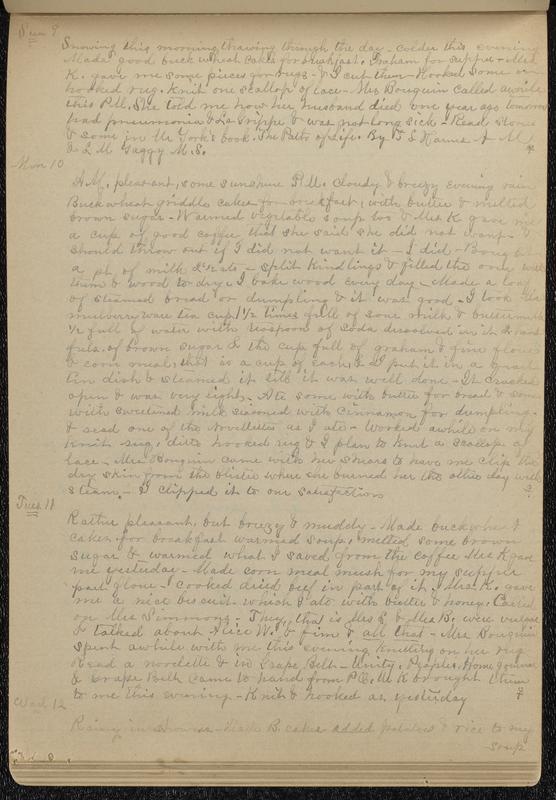 Sun 9
Snowing this morning, thawing through the day - colder this evening
Made good buck wheat cakes for breakfast. Graham for supper - Mrs
K. gave me some pieces for rugs - & I cut them - Hooked some on
hooked rug. Knit one scallop of lace - Mrs Bouquin called awhile
this P.M. She told me how her husband died one year ago tomorrow
had pneumonia & La Grippe & was not long sick - Read stories
& some in Mr York's book. The Path of Life. By
& L M Gaggy M.S.
Mon 10
A.M. pleasant, some sunshine P.M. Cloudy & breezy evening rain
Buckwheat griddle cakes for breakfast, with butter & melted
brown sugar - Warmed vegetable soup too & Mrs K gave me
a cup of good coffee that she said she did not want &
should throw out if I did not want it - I did - Bong
a pt. of milk 2 cts - split kindlings & filled the oven with
them & wood to dry. I bake wood every day - Made a loaf
of steamed bread or dumpling & it was good - I took
mulberry ware tea cup 1 1/2 times full of sour milk & buttermilk
1/2 full of water with teaspoon of soda dissolved in it
fuls. of brown sugar & the cup full of graham & fine flour
& corn meal, that is a cup of each, & I put it in a
tin dish & steamed it till it was well done - It cracked
open & was very light. Ate some with butter for bread & some
with sweetened milk seasoned with cinnamon for dumpling -
& read one of the Novellettes as I ate - Worked awhile on my
knit rug, ditto hooked rug & I plan to knit a scallop of
lace - Mrs Bouquin came with her shears to have me clip the
dry skin from the blister where she burned her the other day with
steam. - I clipped it to our satisfaction
Tues 11
Rather pleasant, but breezy & muddy - Made buckwheat
cakes for breakfast warmed soup, melted some brown
sugar & warmed what I saved from the coffee Mrs K gave
me yesterday - Made corn meal mush for my supper
part flour - I cooked dried beef in part of it. Mrs. K. gave
me a nice biscuit which I ate with butter & honey. Called
on Mrs Simmons - They, that is Mrs S & Mrs B. were
& talked about Alice W. & Jim & all that - Mrs Bouquin
spent awhile with me this evening knitting on her rug
Read a novelette & in Grape Belt - Unity. Peoples Home Journal
& Grape Belt came to hand from P.O. W K brought them
to me this evening - Knit & hooked as yesterday
Wed 12
Rainy in showers - Made B. cakes added potatoes & rice to my
soup